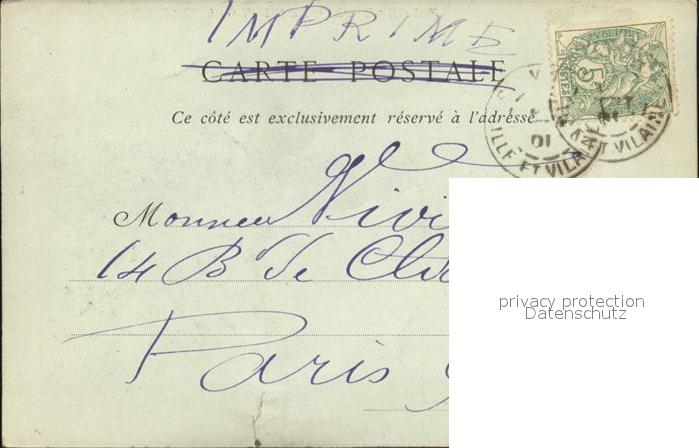 IMPRIME
CARTE POSTALE
Ce côté est exclusivement réservé à l'adresse
Monsieur Vivi
14 B de Cli
Paris
5
ILLE ET VILAINE
01
ET VILAINE
privacy protection
Datenschutz